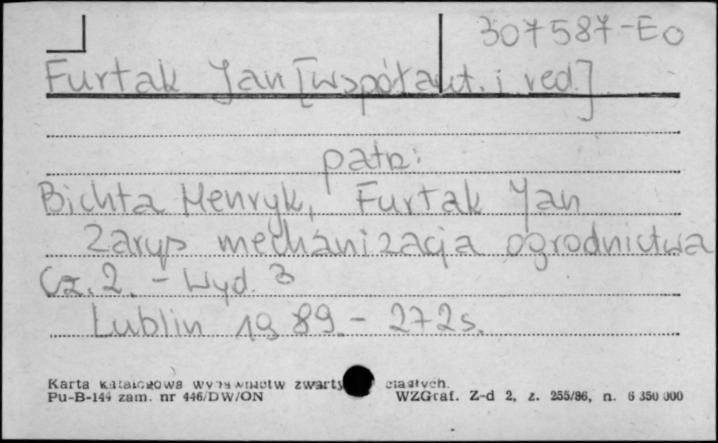 307587-Eo
Furtak Jan [współaut. i red.]
patrz:
Bichta Henryk, Furtak Jan
Zarys mechanizacja ogrodnictwa
Cz. 2. - Wyd. 3
Lublin 1989. - 272s.
Karta katalogowa wydawnictw zwartych ciągłych.
Pu-B-144 zam. nr 446/DW/ON WZGraf. Z-d 2, z. 255/86, n. 6 350 000